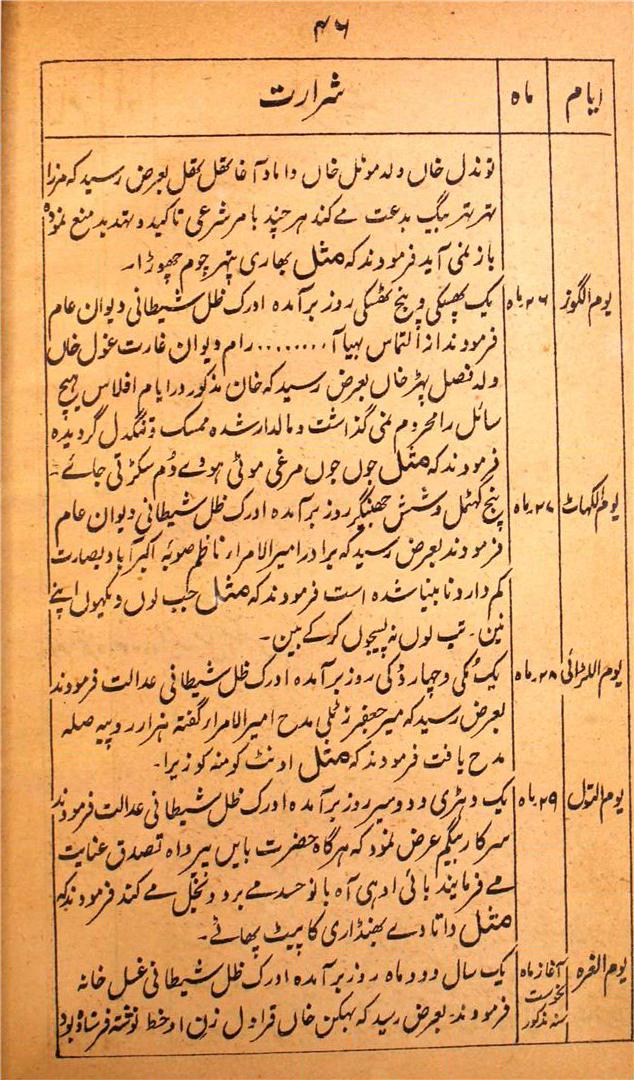 ۴۶
ایام ماہ شرارت
توندل خاں ولد موئل خاں داماد آغا لقل بقل بعرض رسید کہ مرزا
بہتر بیگ بدعت مے کند ہر چند بامر شرعی تاکید و تہدید منع نمودہ
باز نمی آید فرمودند کہ مثل بھاری پتھر چوم چھوڑا۔
یوم الگوز ۲۶ ماہ یک پھسکی و پنج ٹھسکی روز برآمدہ اورک ظل شیطانی دیوان عام
فرمودند از التماس بہیا آ........ رام دیوان غارت غول خاں
ولد فصل پہڑ خاں بعرض رسید کہ خان مذکور در ایام افلاس ہیچ
سائل را محروم نمی گذاشت و مالدار شدہ ممسک و تنگدل گردیدہ
فرمودند کہ مثل جوں جوں مرغی موٹی ہووے دُم سکڑتی جائے۔
یوم الکہاٹ ۲۷ ماہ پنج گھٹمل و شش جھینگر روز برآمدہ اورک ظل شیطانی دیوان عام
فرمودند بعرض رسید کہ برادر امیر الامرار ناظم صوبہ اکبر آباد بصارت
کم دارد نابینا شدہ است فرمودند کہ مثل جب لوں دیکھوں اپنے
نین۔ تب لوں نہ پسیجوں کر کے بین۔
یوم اللڑائی ۲۸ ماہ یک مُکی و چہار ڈکی روز برآمدہ اورک ظل شیطانی عدالت فرمودند
بعرض رسید کہ میر جعفر زٹلی مدح امیر الامرار گفتہ ہزار روپیہ صلہ
مدح یافت فرمودند کہ مثل اونٹ کو منہ کو زیرا۔
یوم التول ۲۹ ماہ یک دہڑی و دو سیر روز برآمدہ اورک ظل شیطانی عدالت فرمودند
سرکار بیگم عرض نمود کہ ہرگاہ حضرت بایں پیر داہ تصدق عنایت
مے فرمایند بائی اوہی آہ بانو حسد مے برد و بخل مے کند فرمودند کہ
مثل داتا دے بھنڈاری کا پیٹ پھاٹے۔
یوم الغرہ آغاز ماہ نحوست سنہ مذکور یک سال و دو ماہ روز برآمدہ اورک ظل شیطانی غسل خانہ
فرمودند بعرض رسید کہ بہکن خاں قراول زن او خط نوشتہ فرستادہ بود